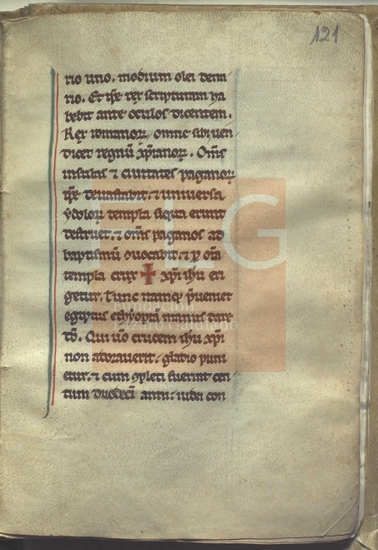 121
rio uno. modium olei dena
rio. Et ipse rex scripturam ha
bebit ante oculos dicentem.
Rex romanor. omne sibi uen
dicet regnũ xp̃ianor. Om̃s
insulas et ciuitates paganor
ipse deuastabit. et uniuersa
ydolor templa siqua erunt
destruet. et om̃s paganos ad
baptismũ ouocabit. et p om̃ia
templa crux xp̃i ihu eri
getur. Tunc namq; p̃ueniet
egiptus ethyoptũ manus dare
do. Qui u̾o crucem ihu xp̃i
non adorauerit. gladio puni
etur. et cum ɔpleti fuerint cen
tum duodecĩ anni. iudei con